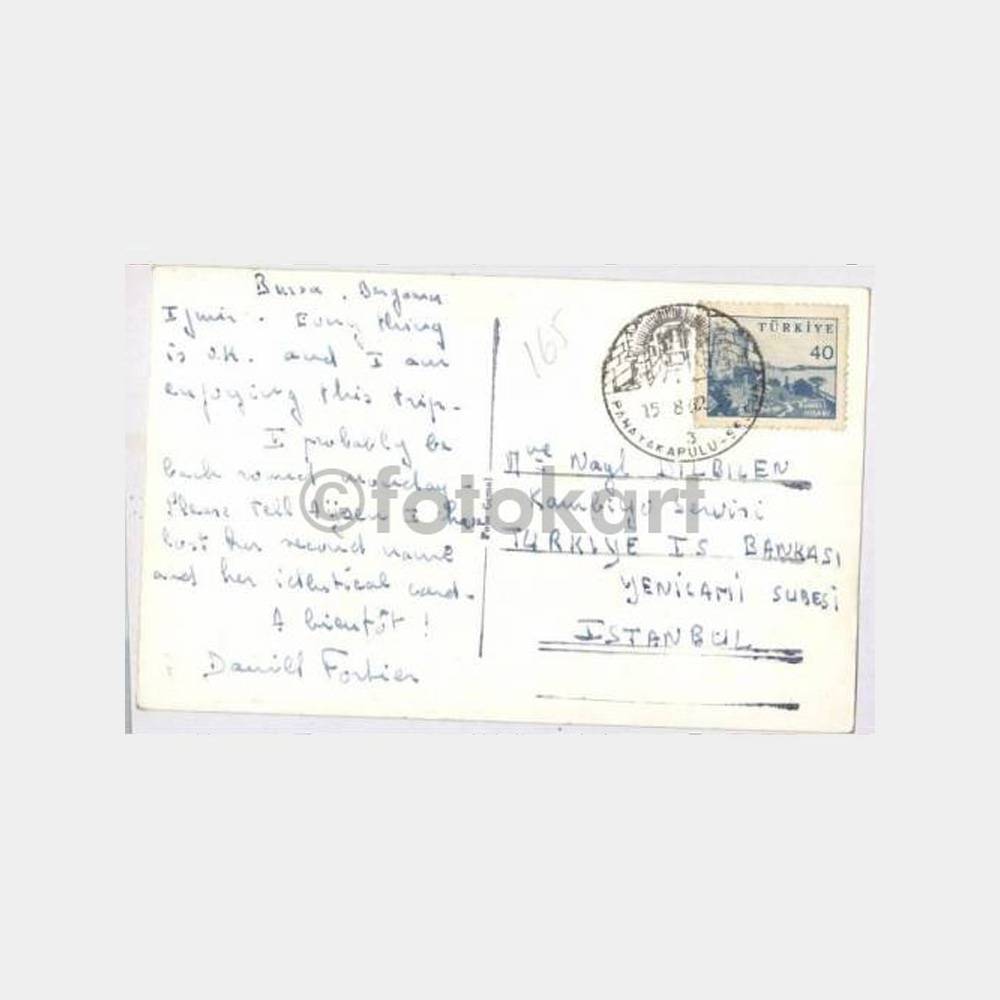 Bursa. Bergama
Izmir. Every thing
is O.K. and I am
enjoying this trip.
I probably be
back round monday.
Please tell I have
lost her second name
and her identical card.
A bientôt !
Fortier
165
TÜRKİYE
40
RUMELİ
HİSARI
15 8
3
Foto Cemal
Mve Nayl DILBILEN
Kambiyo Servisi
TÜRKIYE IS BANKASI
YENICAMI SUBESI
ISTANBUL
©fotokart